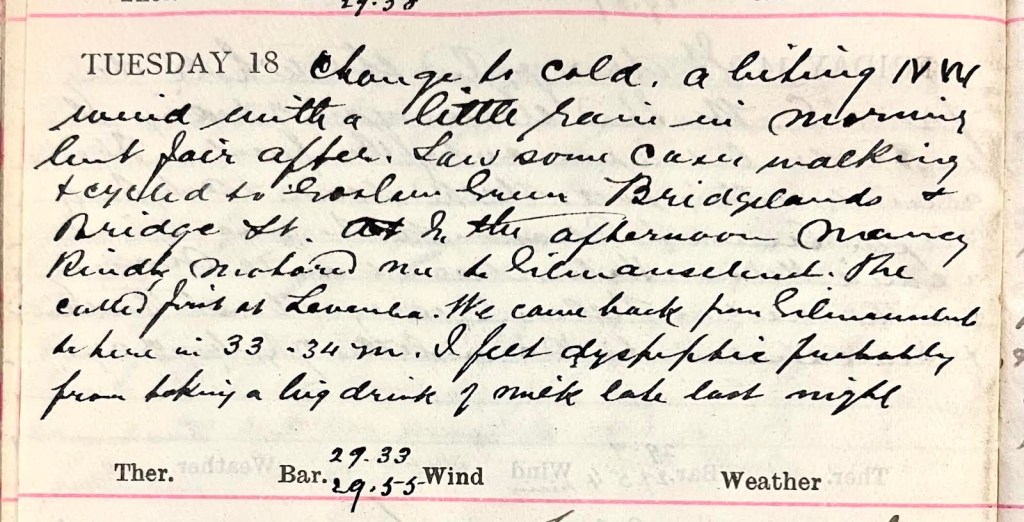 29.38
TUESDAY 18 Change to cold. a biting NW
wind with a little rain in morning
but fair after. Saw some cases walking
& cycled to Green Bridgelands &
Bridge St. In the afternoon Nancy
Kindly motored me to Gilmanscleuch. She
called first at . We came back from Gilmanscleuch
to here in 33-34 m. I felt dyspeptic probably
from taking a big drink of milk late last night
Ther. Bar. 29.33 Wind Weather
29.55